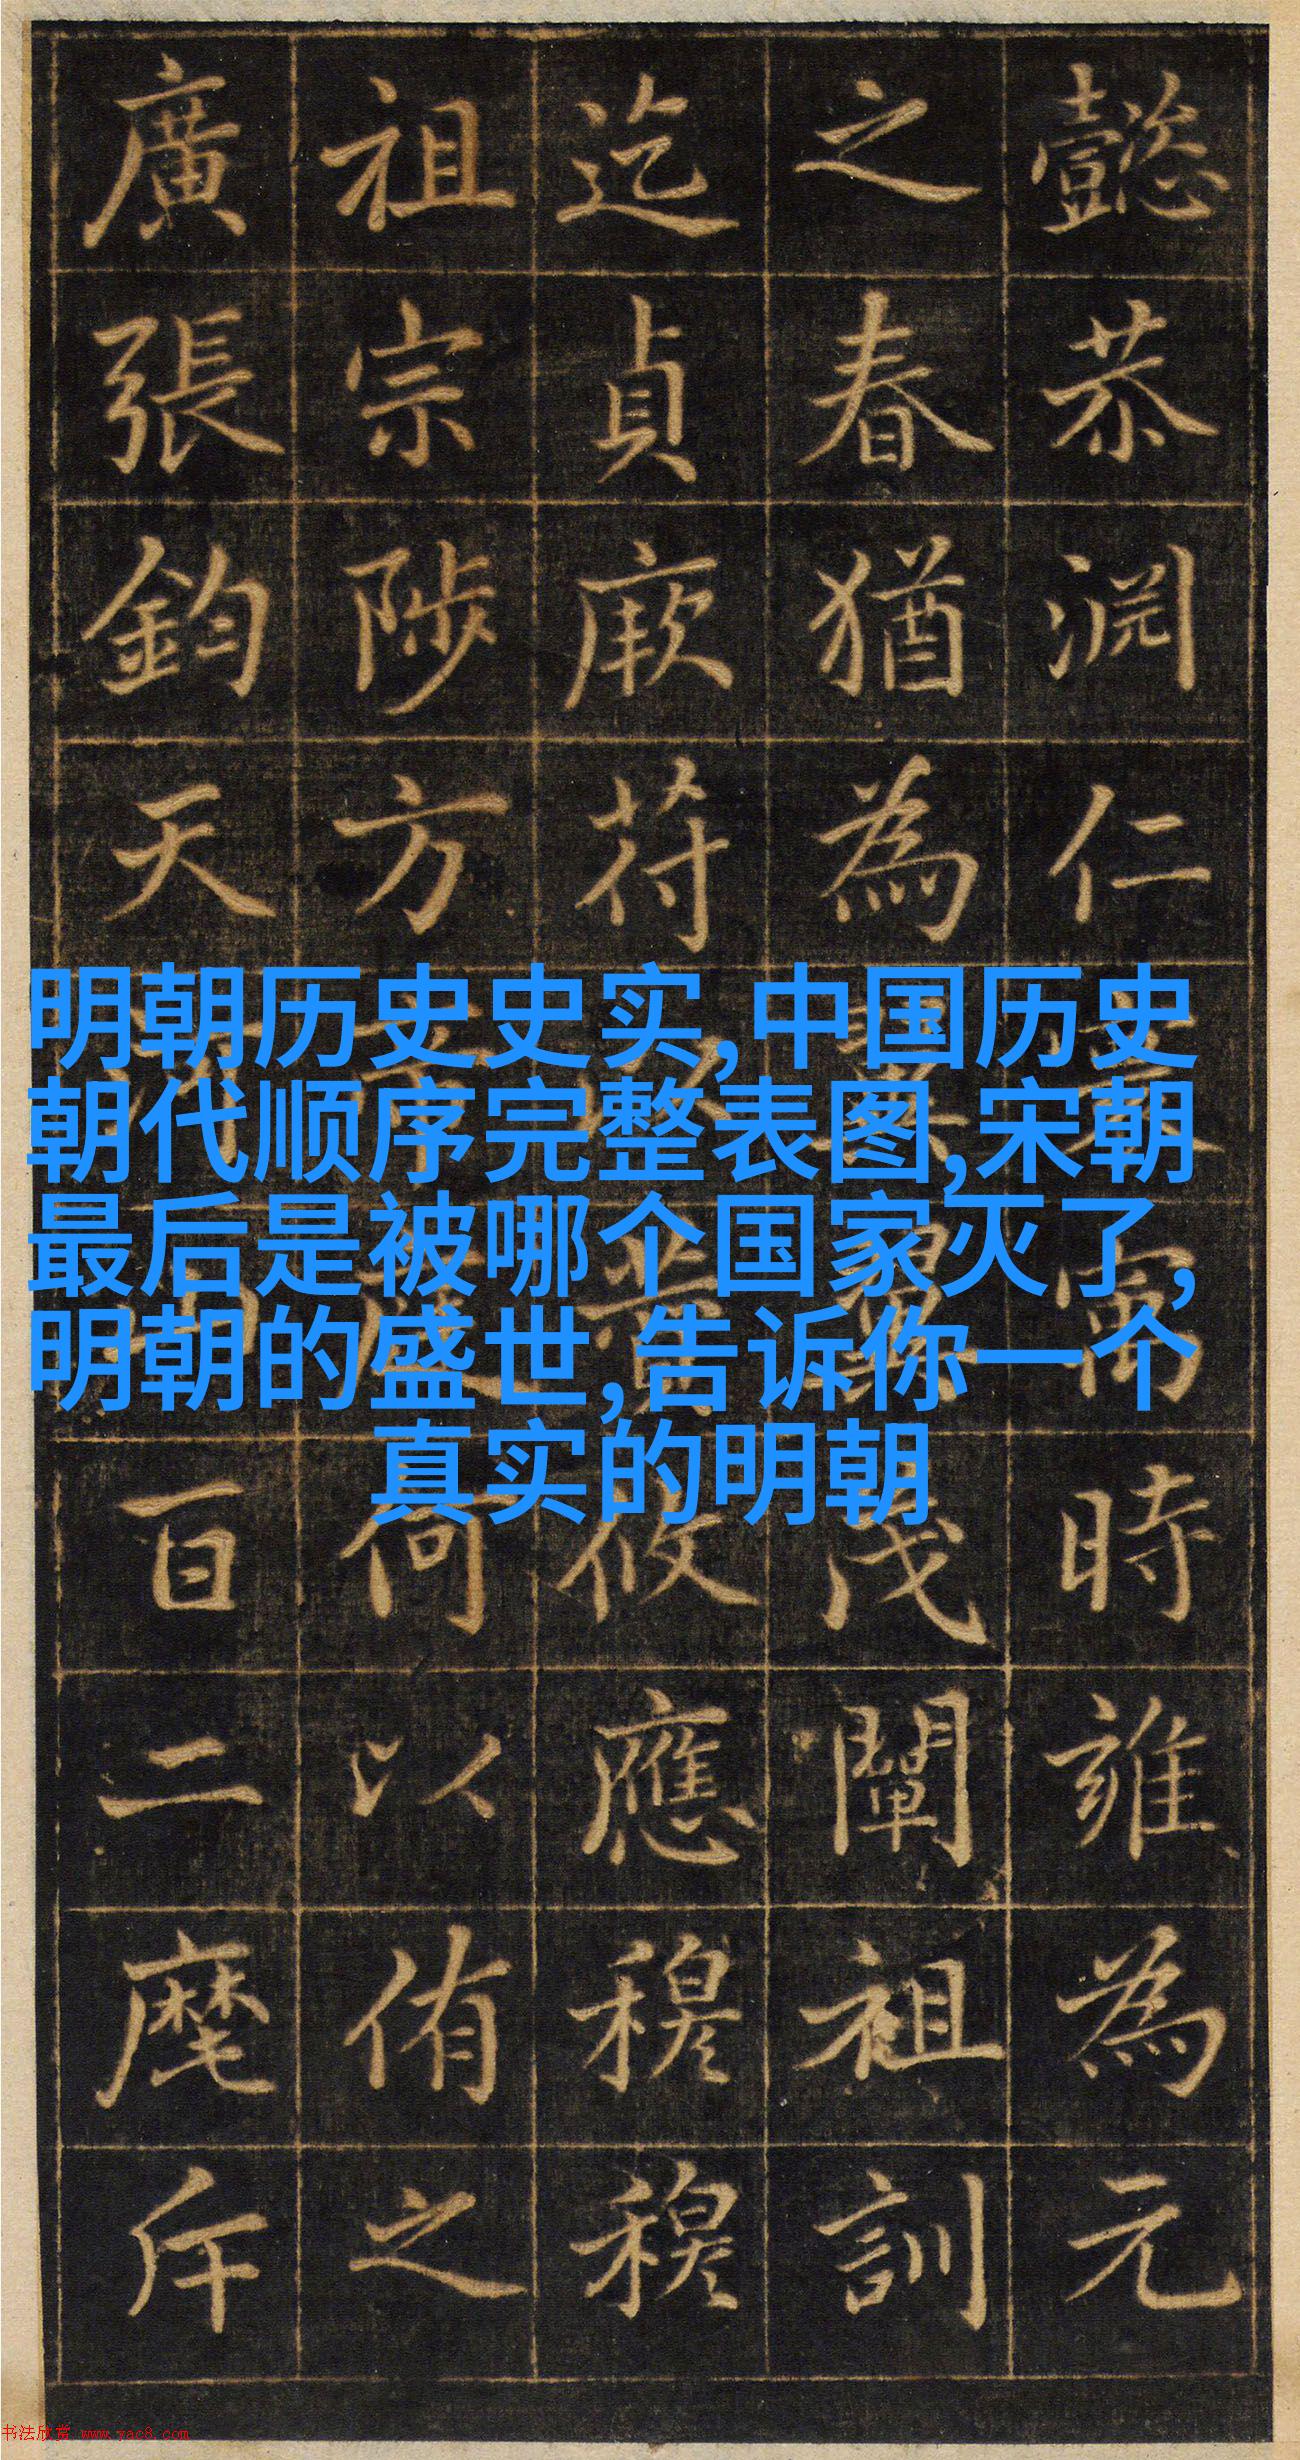 懿恭淵仁時雍為元
之春猶為茂闡祖訓
迄貞厥符攸應穆穆
祖宗陟方何以侑之
廣張鈞天百二麾斥
明朝历史史实,中国历史
朝代顺序完整表图,宋朝
最后是被哪个国家灭了,
明朝的盛世,告诉你一个
真实的明朝
书法欣赏 www.yac8.com